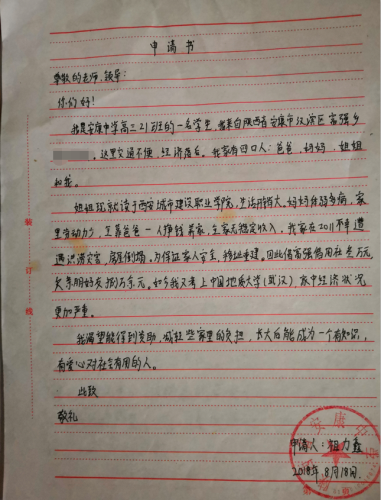 申请书
尊敬的老师、领导：
你们好！
我是安康中学高三21班的一名学生，我来自陕西省安康市汉滨区富强乡
，这里交通不便，经济落后。我家有四口人：爸爸，妈妈，姐姐
和我。
姐姐现就读于西安城市建设职业学院，生活开销大。妈妈体弱多病，家
里劳动力少，主靠爸爸一人挣钱养家，全家无稳定收入，我家在2011年遭
遇洪涝灾害，房屋倒塌，为保证家人安全，移址重建。因此借高强信用社五万元
欠亲朋好友五万余元。如今我又考上中国地质大学（武汉），家中经济状况
更加严重。
我渴望能得到资助，减轻些家里的负担，长大后能成为一个有知识，
有爱心对社会有用的人。
此致
敬礼
申请人：程力鑫
2018年8月18日
装
订
线
安康